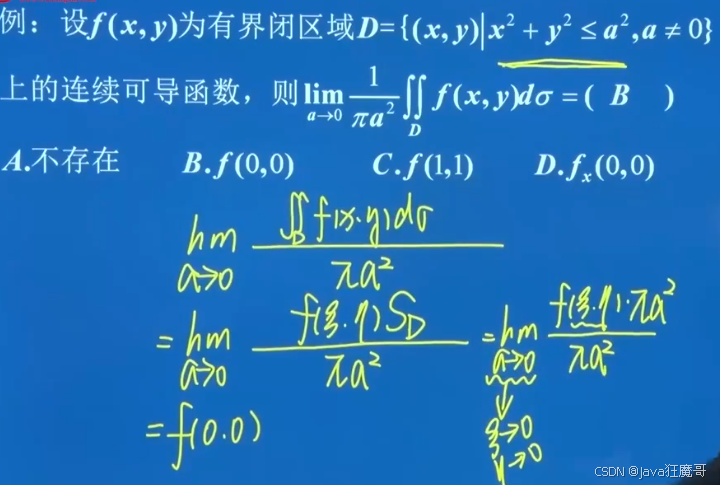 例：设f(x,y)为有界闭区域D={(x,y)|x²+y²≤a²,a≠0}
上的连续可导函数，则lim_{a→0} 1/(πa²) ∬_D f(x,y)dσ=( B )
A.不存在 B.f(0,0) C.f(1,1) D.f_x(0,0)
lim_{a→0} ∬_D f(x,y)dσ / πa²
=lim_{a→0} f(ξ,η)S_D / πa² =lim_{a→0} f(ξ,η)·πa² / πa²
=f(0,0)
ξ→0
η→0
CSDN @java狂魔哥